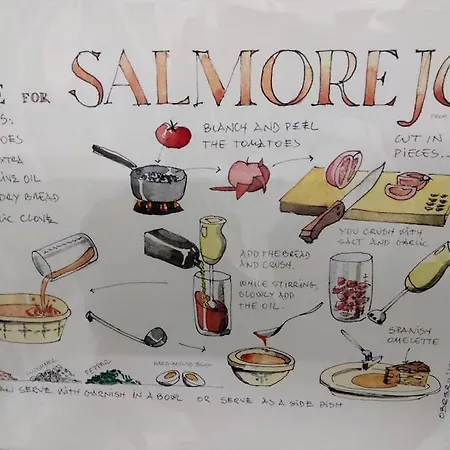 E FOR SALMOREJO
S:
OES
XTRA
IVE OIL
DRY BREAD
IC CLOVE
BLANCH AND PEEL
THE TOMATOES
CUT IN
PIECES...
YOU CRUSH WITH
SALT AND GARLIC
ADD THE BREAD
AND CRUSH.
WHILE STIRRING,
SLOWLY ADD
THE OIL.
SPANISH
OMELETTE
CUCUMBER
PEPPER
HARD-BOILED EGGS
AN SERVE WITH GARNISH IN A BOWL OR SERVE AS A SIDE DISH